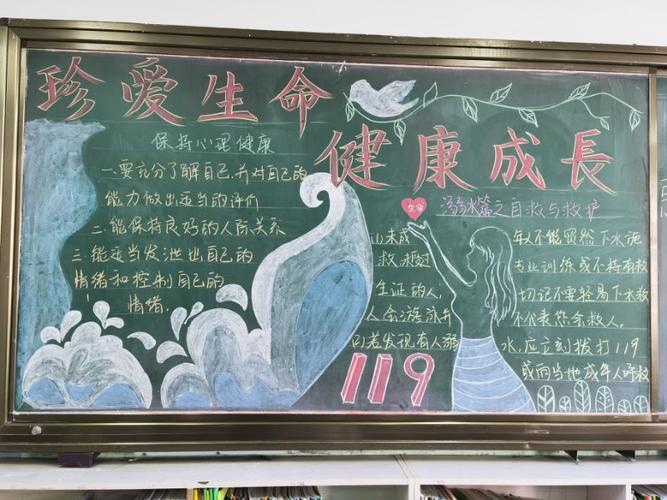 珍爱生命
健康成長
保持心理健康
一.要充分了解自己,并对自己的
能力做出正当的评们
二.能保持良好的人际关系
三.能正当发泄出自己的
情绪和控制自己的
情绪.
生命
溺水篇之自救与救护
山未成年人不能贸然下水施
救.未经专业训练或不持有救
生证的人,切记不要轻易下水救
人会游泳并不代表您会救人.
②若发现有人溺水,应立刻拨打119
或向当地成年人呼救
119